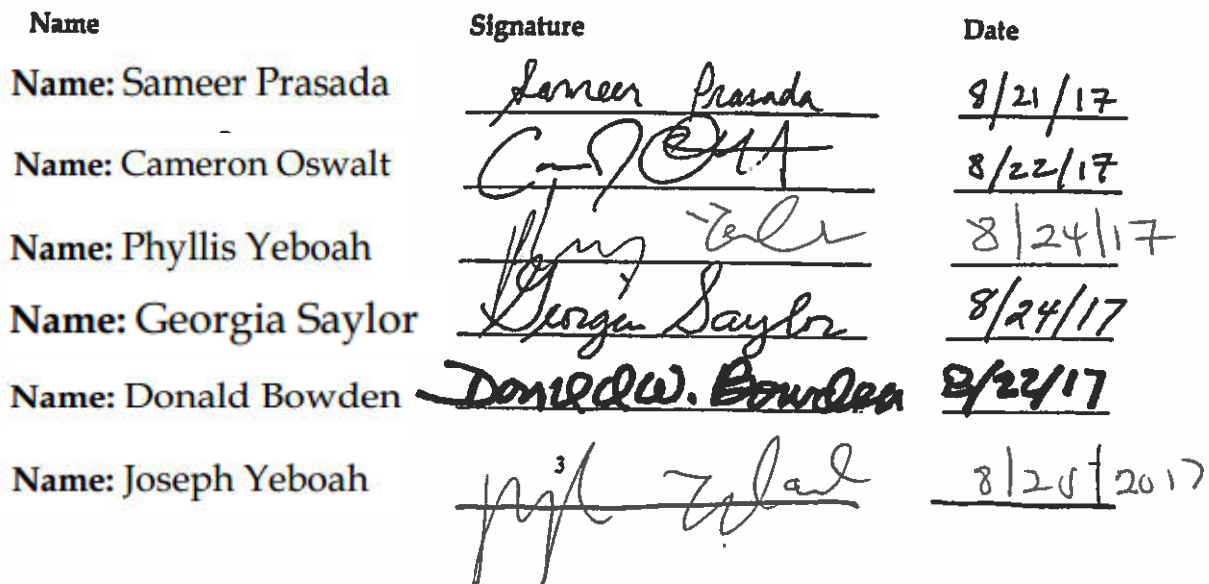 Name Signature Date
Name: Sameer Prasada Sameer Prasada 8/21/17
Name: Cameron Oswalt 8/22/17
Name: Phyllis Yeboah 8/24/17
Name: Georgia Saylor Georgia Saylor 8/24/17
Name: Donald Bowden Donald W. Bowden 8/22/17
3
Name: Joseph Yeboah